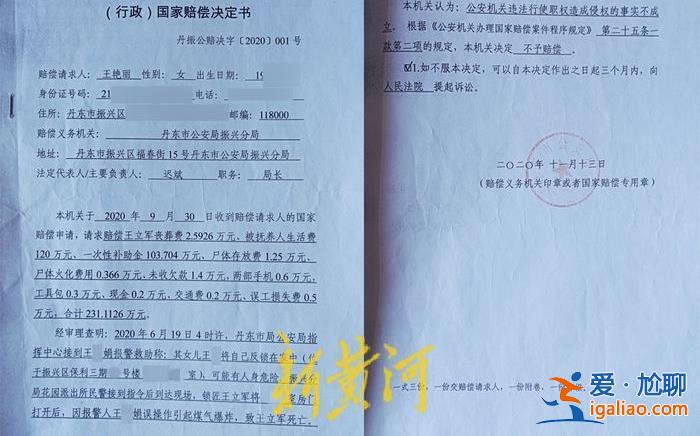 （行政）国家赔偿决定书
丹振公赔决字〔2020〕001号
赔偿请求人：王艳丽 性别：女 出生日期：19
身份证号码：21 电话：
住所：丹东市振兴区 邮编：118000
赔偿义务机关：丹东市公安局振兴分局
地址：丹东市振兴区福春街15号丹东市公安局振兴分局
法定代表人/主要负责人：迟斌 职务：局长
本机关于2020年9月30日收到赔偿请求人的国家
赔偿申请，请求赔偿王立军丧葬费2.5926万元、被抚养人生活费
120万元、一次性补助金103.704万元、尸体存放费1.25万元、
尸体火化费用0.366万元、未收欠款1.4万元，两部手机0.6万元，
工具包0.3万元，现金0.2万元，交通费0.2万元、误工损失费0.5
万元，合计231.1126万元。
经审理查明：2020年6月19日4时许，丹东市局公安局指
挥中心接到王 娟报警救助称：其女儿王 将自己反锁在家中（位
于振兴区保利三期 号楼 室），可能有人身危险，振兴分
局花园派出所民警接到指令后到达现场，锁匠王立军将 房门
打开后，因报警人王 娟误操作引起煤气爆炸，致王立军死亡。
新黄河
本机关认为：公安机关违法行使职权造成侵权的事实不成
立，根据《公安机关办理国家赔偿案件程序规定》第二十五条一
款第二项的规定，本机关决定 不予赔偿。
☑1.如不服本决定，可以自本决定作出之日起三个月内，向
人民法院 提起诉讼。
二〇二〇年十一月十三日
（赔偿义务机关印章或者国家赔偿专用章）
一式三份，一份交赔偿请求人，一份附卷，一份
爱·尬聊
igaliao.com